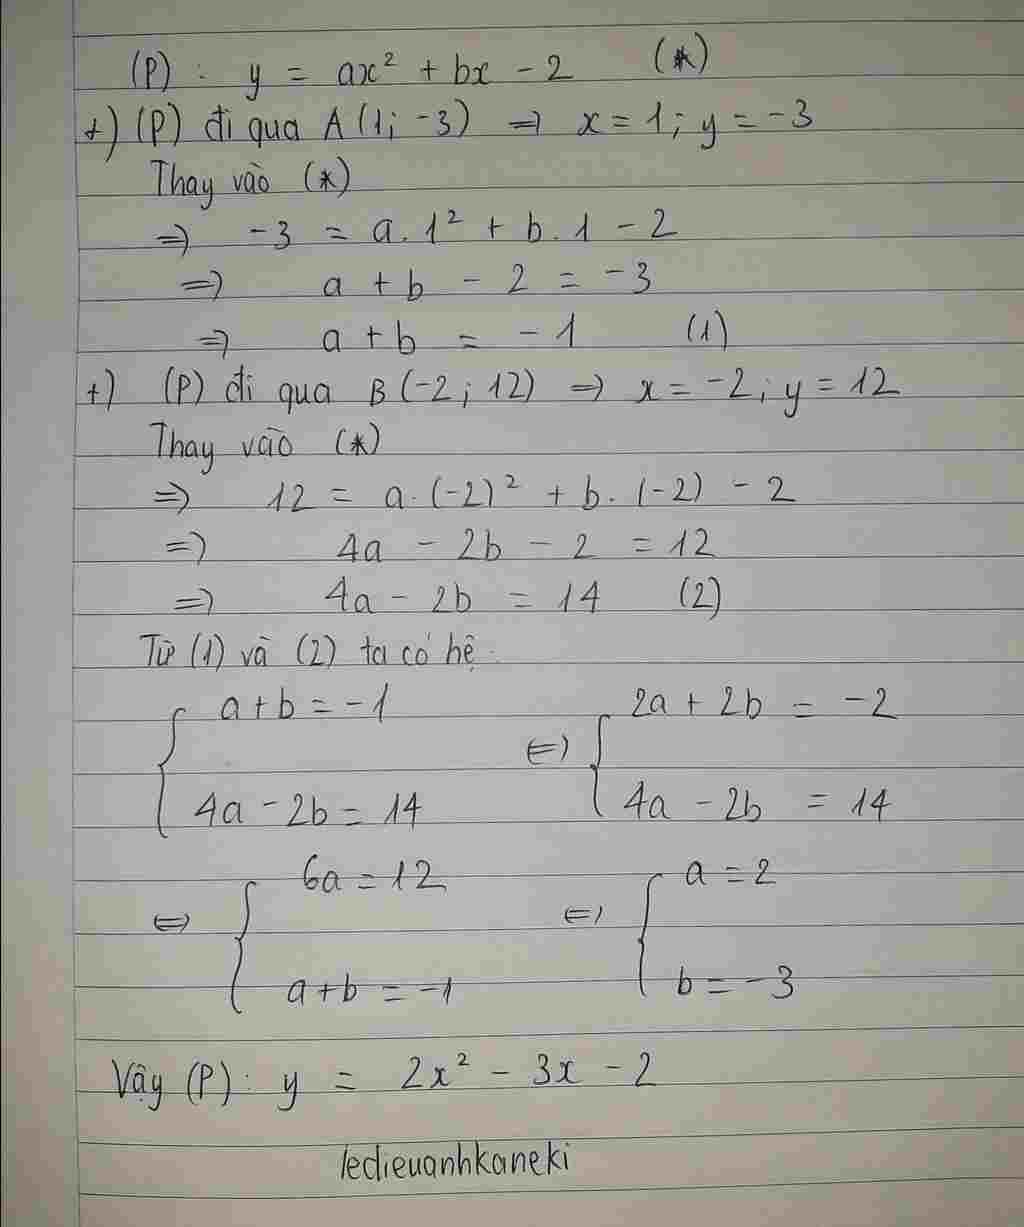 (P) : y = ax² + bx - 2 (*)
+) (P) đi qua A (1; -3) => x = 1; y = -3
Thay vào (*)
=> -3 = a.1² + b.1 - 2
=> a + b - 2 = -3
=> a + b = -1 (1)
+) (P) đi qua B (-2; 12) => x = -2; y = 12
Thay vào (*)
=> 12 = a.(-2)² + b.(-2) - 2
=> 4a - 2b - 2 = 12
=> 4a - 2b = 14 (2)
Từ (1) và (2) ta có hệ:
{ a + b = -1 <=> { 2a + 2b = -2
4a - 2b = 14 4a - 2b = 14
<=> { 6a = 12 <=> { a = 2
a + b = -1 b = -3
Vậy (P) : y = 2x² - 3x - 2
ledieuanhkaneki